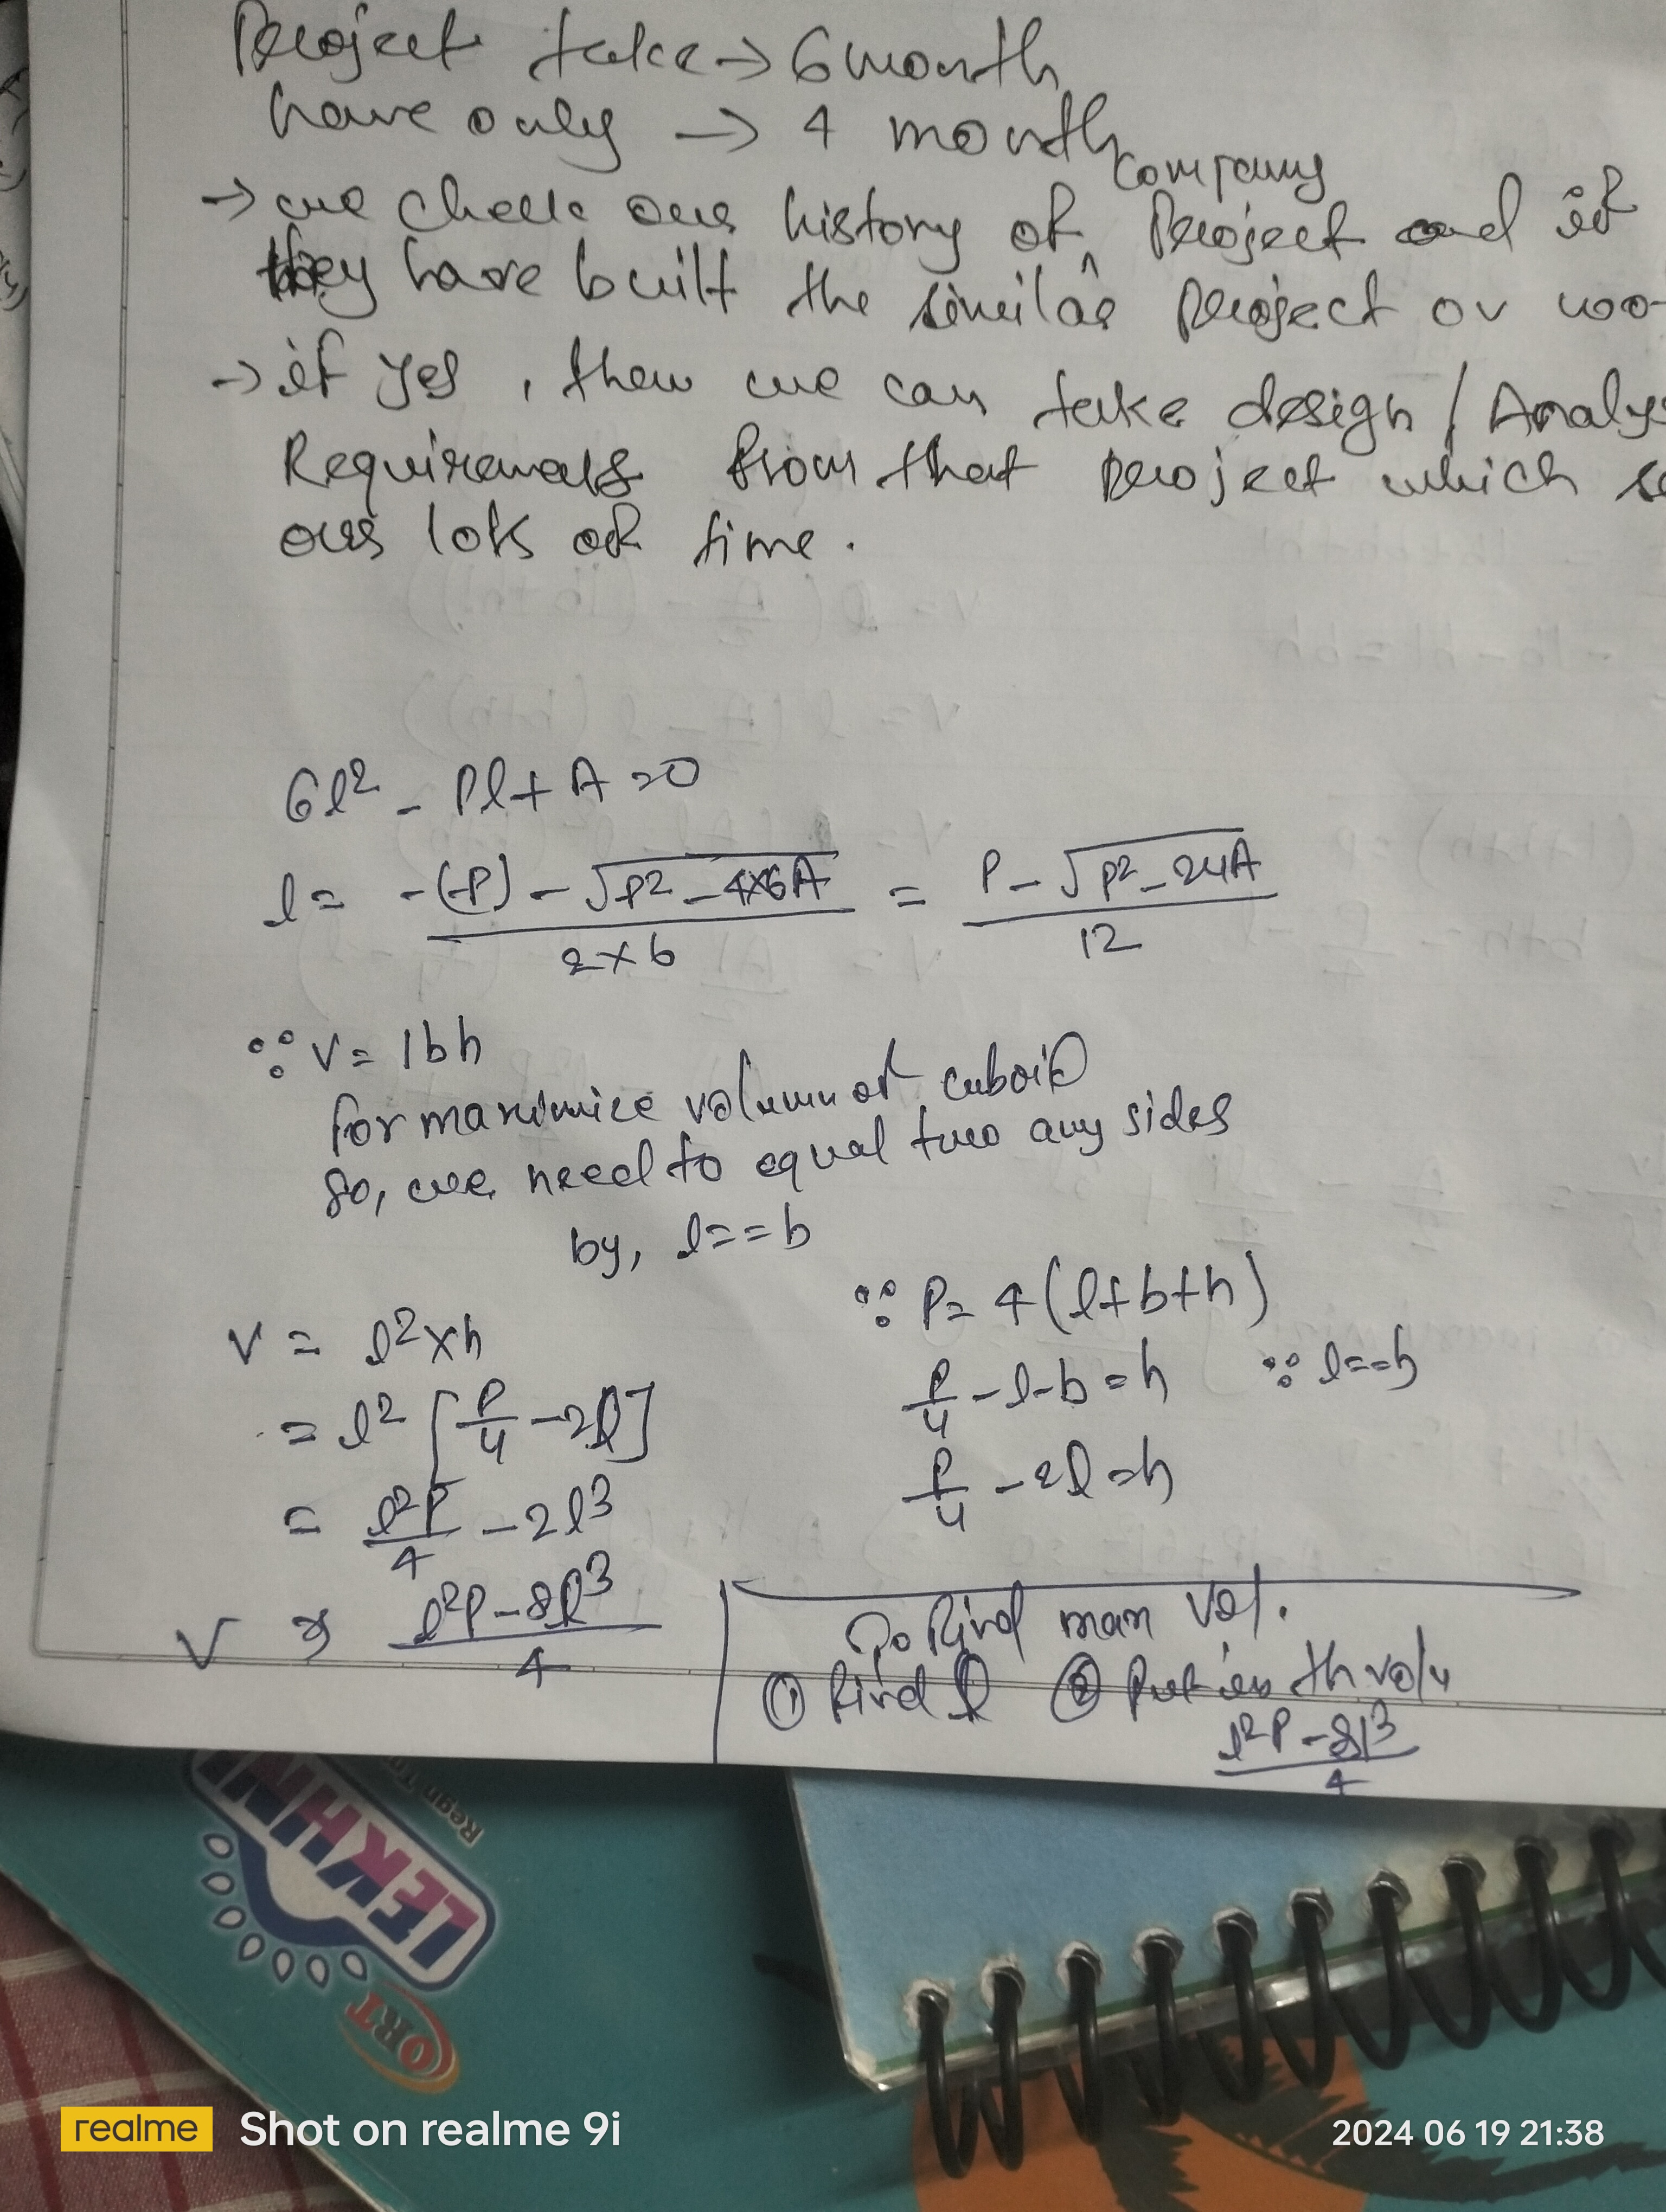 Project take → 6 month
have only → 4 month
company
→ we check our history of ^ Project and if
they have built the similar project or no
→ if yes, then we can take design / Analys
Requirements from that project which s
our lots of time.
6l² - Pl + A = 0
l = -(-P) - √P² - 4×6A / 2×6 = P - √P² - 24A / 12
∵ V = lbh
for maximize volume of cuboid
so, we need to equal two any sides
by, l == b
∵ P = 4(l+b+h)
V = l² × h
P/4 - l - b = h ∵ l == b
= l² [P/4 - 2l]
P/4 - 2l = h
= l²P/4 - 2l³
V = l²P - 8l³ / 4
To find max vol.
① find l ② Put in th volu
l²P - 8l³ / 4
LEKHNI
Regn
ORT
realme Shot on realme 9i
2024 06 19 21:38